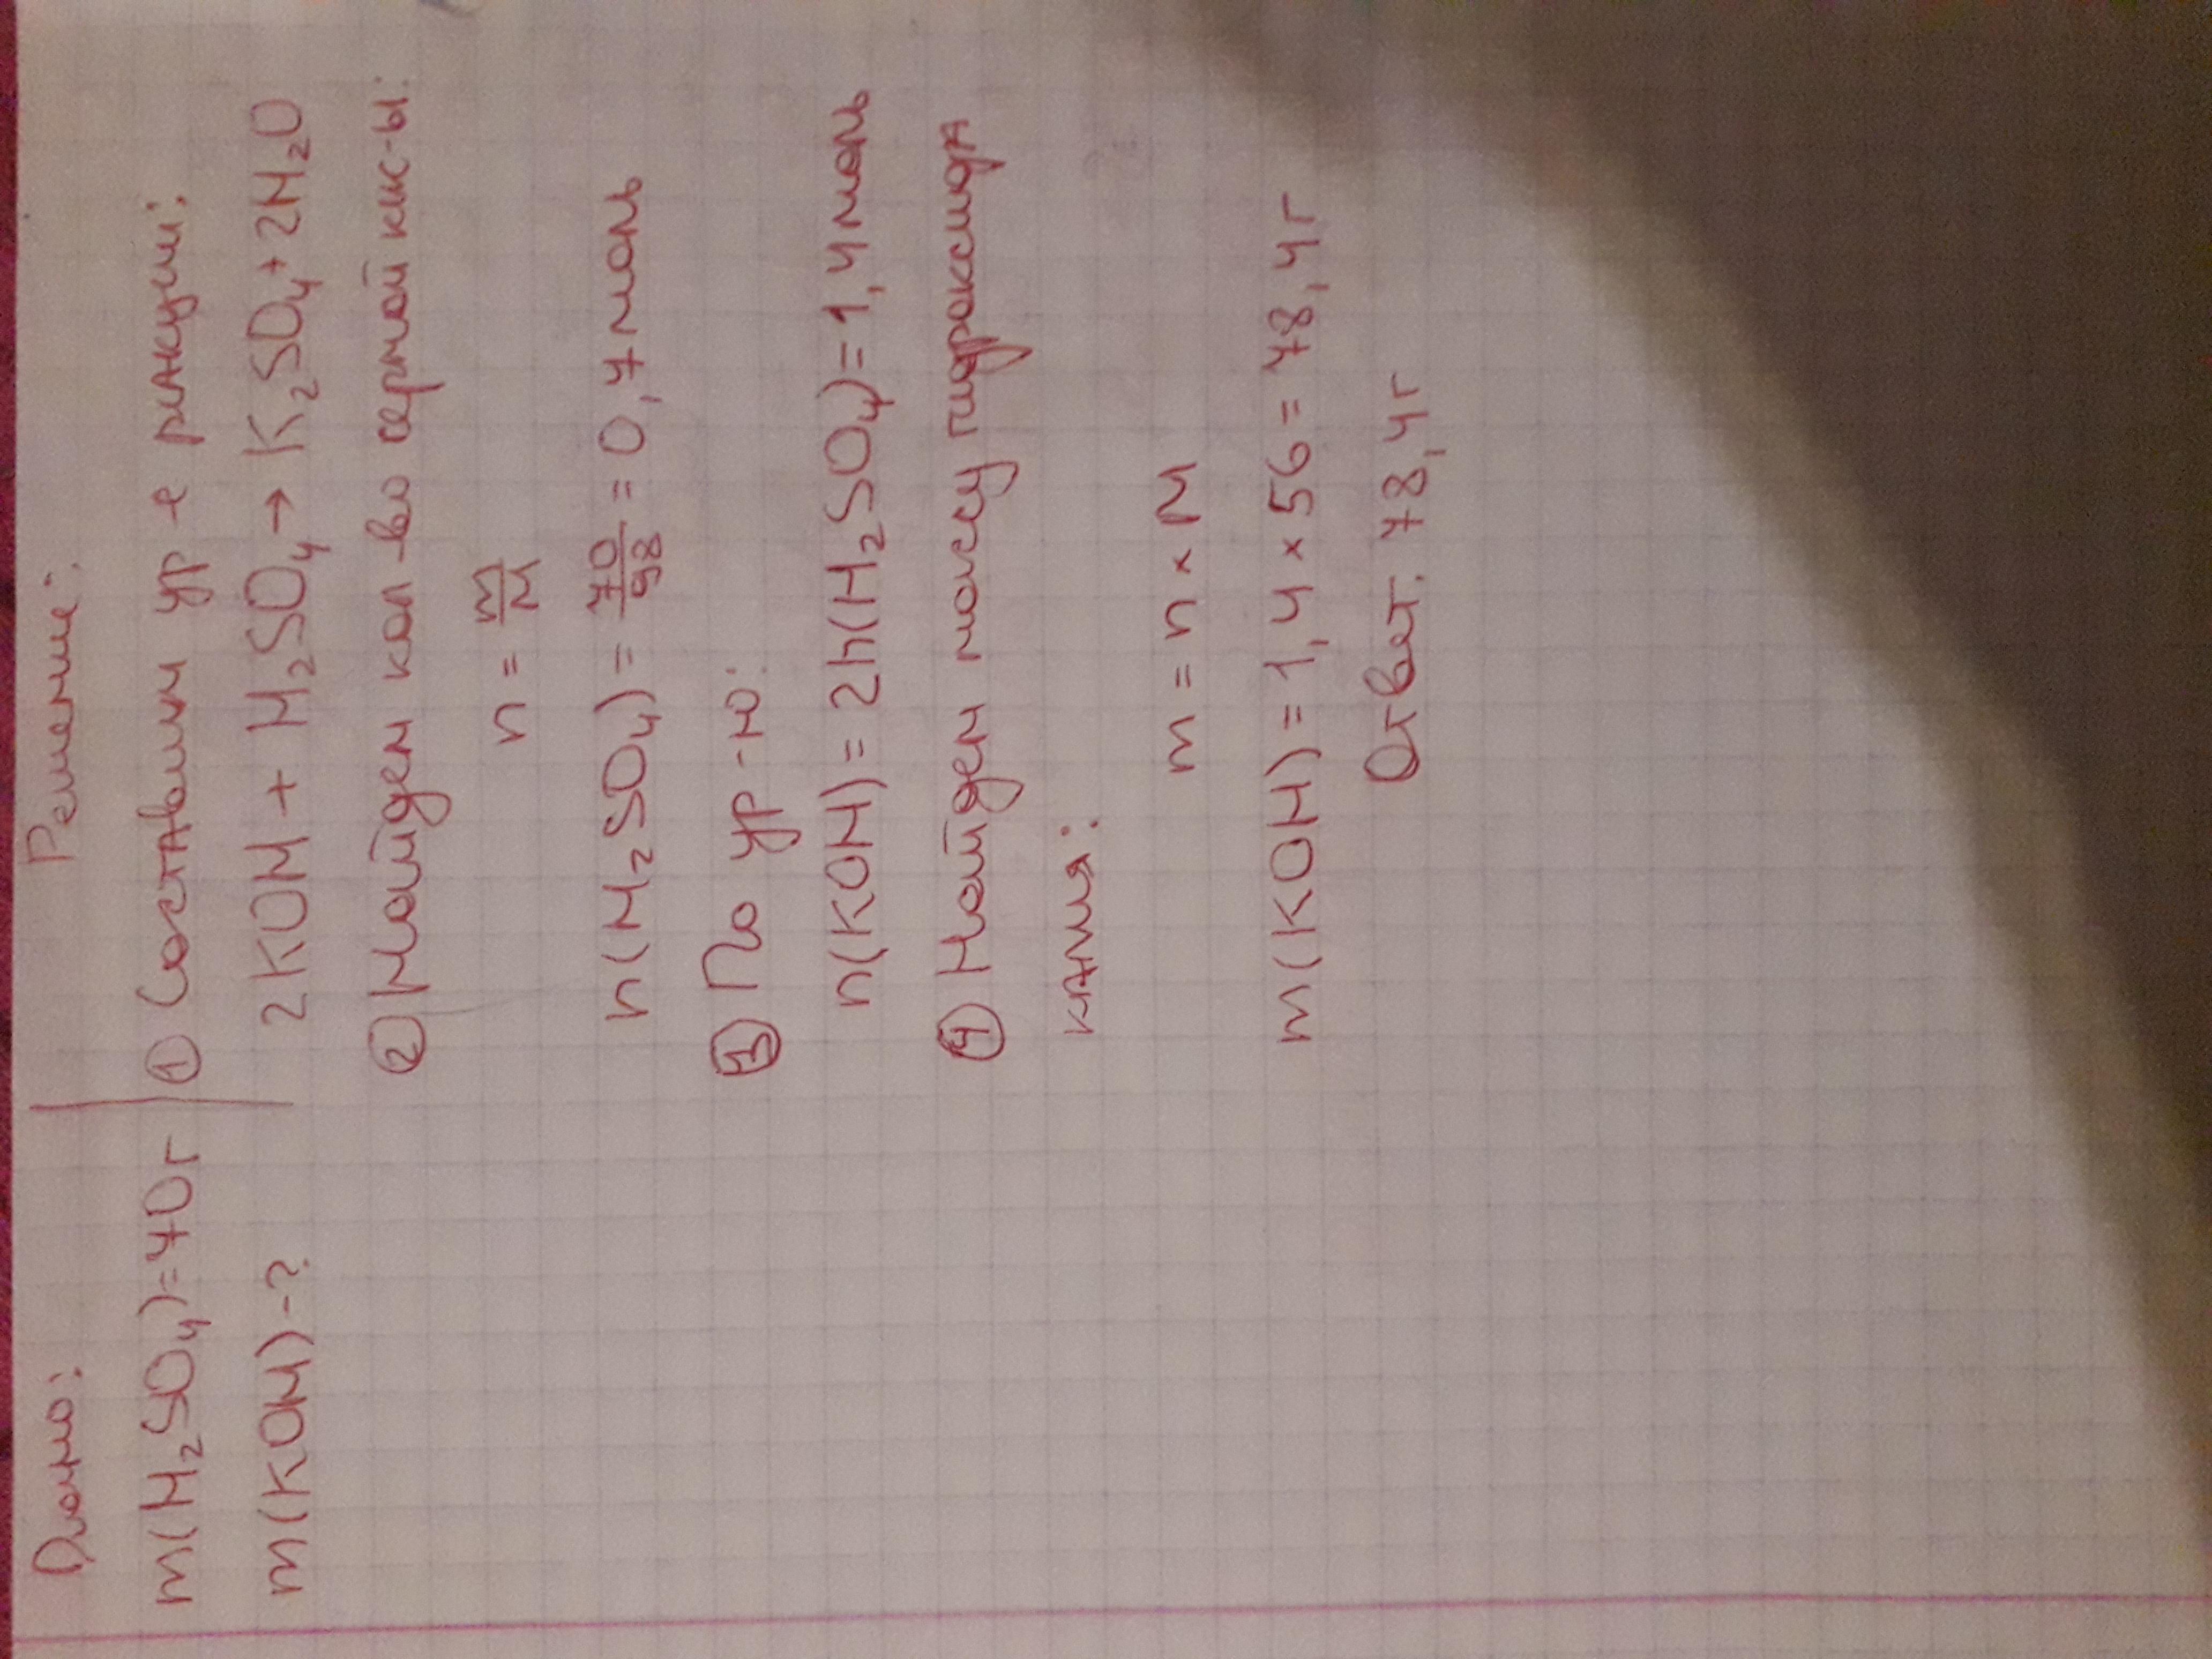 Дано:
m(H₂SO₄)=70г
m(KOH)-?
Решение:
① Составим ур-е реакции:
2KOH + H₂SO₄ → K₂SO₄ + 2H₂O
② Найдем кол-во серной кис-ы:
n = m/M
n(H₂SO₄) = 70/98 = 0,7 моль
③ По ур-ю:
n(KOH) = 2n(H₂SO₄) = 1,4 моль
④ Найдем массу гидроксида
калия:
m = n × M
m(KOH) = 1,4 × 56 = 78,4г
Ответ: 78,4г